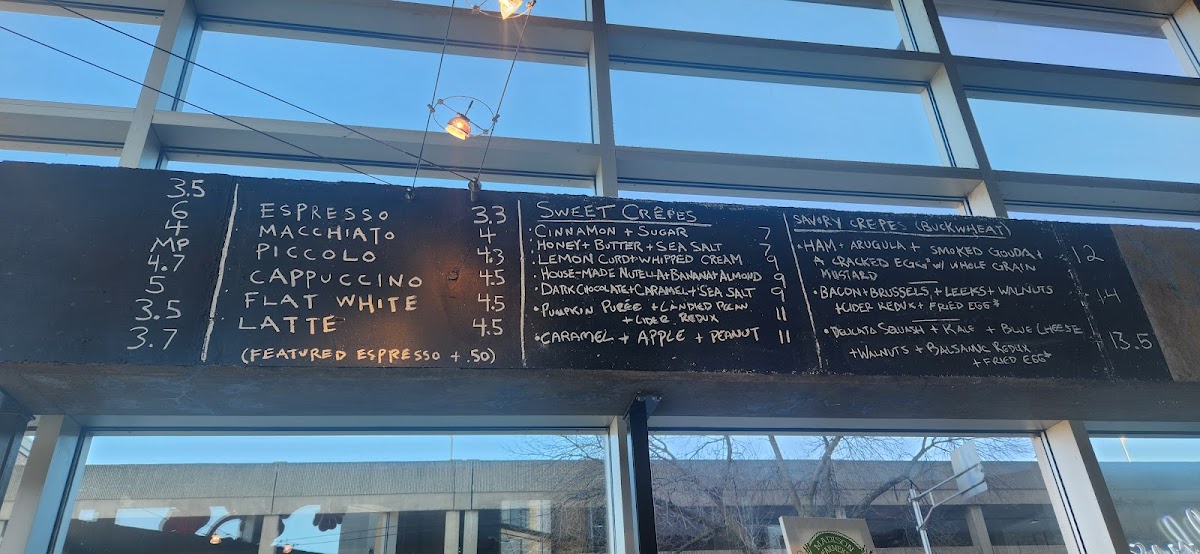 3.5
6
4
MP
4.7
5
3.5
3.7
ESPRESSO 3.3
MACCHIATO 4
PICCOLO 4.3
CAPPUCCINO 4.5
FLAT WHITE 4.5
LATTE 4.5
(FEATURED ESPRESSO +.50)
SWEET CRÊPES
• CINNAMON + SUGAR 7
• HONEY + BUTTER + SEA SALT 7
• LEMON CURD + WHIPPED CREAM 9
• HOUSE-MADE NUTELLA + BANANA + ALMOND 9
• DARK CHOCOLATE + CARAMEL + SEA SALT 9
• PUMPKIN PURÉE + CANDIED PECAN
+ CIDER REDUX 11
• CARAMEL + APPLE + PEANUT 11
SAVORY CREPES (BUCKWHEAT)
• HAM + ARUGULA + SMOKED GOUDA + 12
A CRACKED EGG* W/ WHOLE GRAIN
MUSTARD
• BACON + BRUSSELS + LEEKS + WALNUTS 14
+ CIDER REDUX + FRIED EGG*
• DELICATA SQUASH + KALE + BLUE CHEESE 13.5
+ WALNUTS + BALSAMIC REDUX
+ FRIED EGG*
MADISON